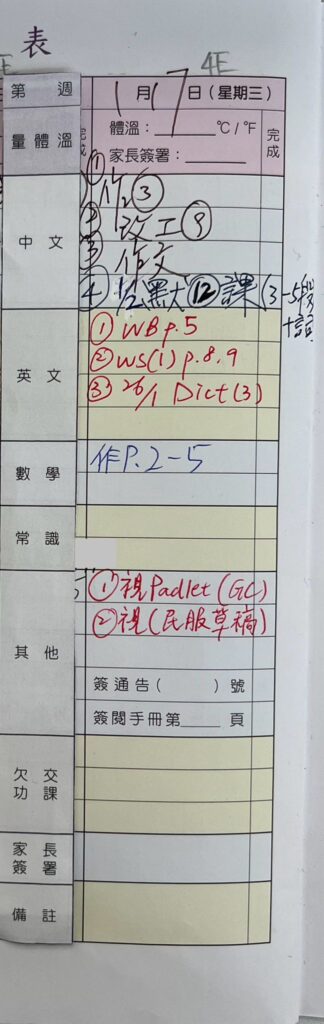 表
4E
第 週
1月17日(星期三)
量體溫
完成
體溫: °C / °F
家長簽署:
完成
中文
①作③
②改工⑨
③作文
④公默⑫課(3-5段
+詞語
英文
① WB p.5
② WS(1) p.8,9
③ 26/1 Dict (3)
數學
作P.2-5
常識
其他
①視Padlet (GC)
②視(民服草稿)
簽通告( )號
簽閱手冊第 頁
欠交功課
家長簽署
備註